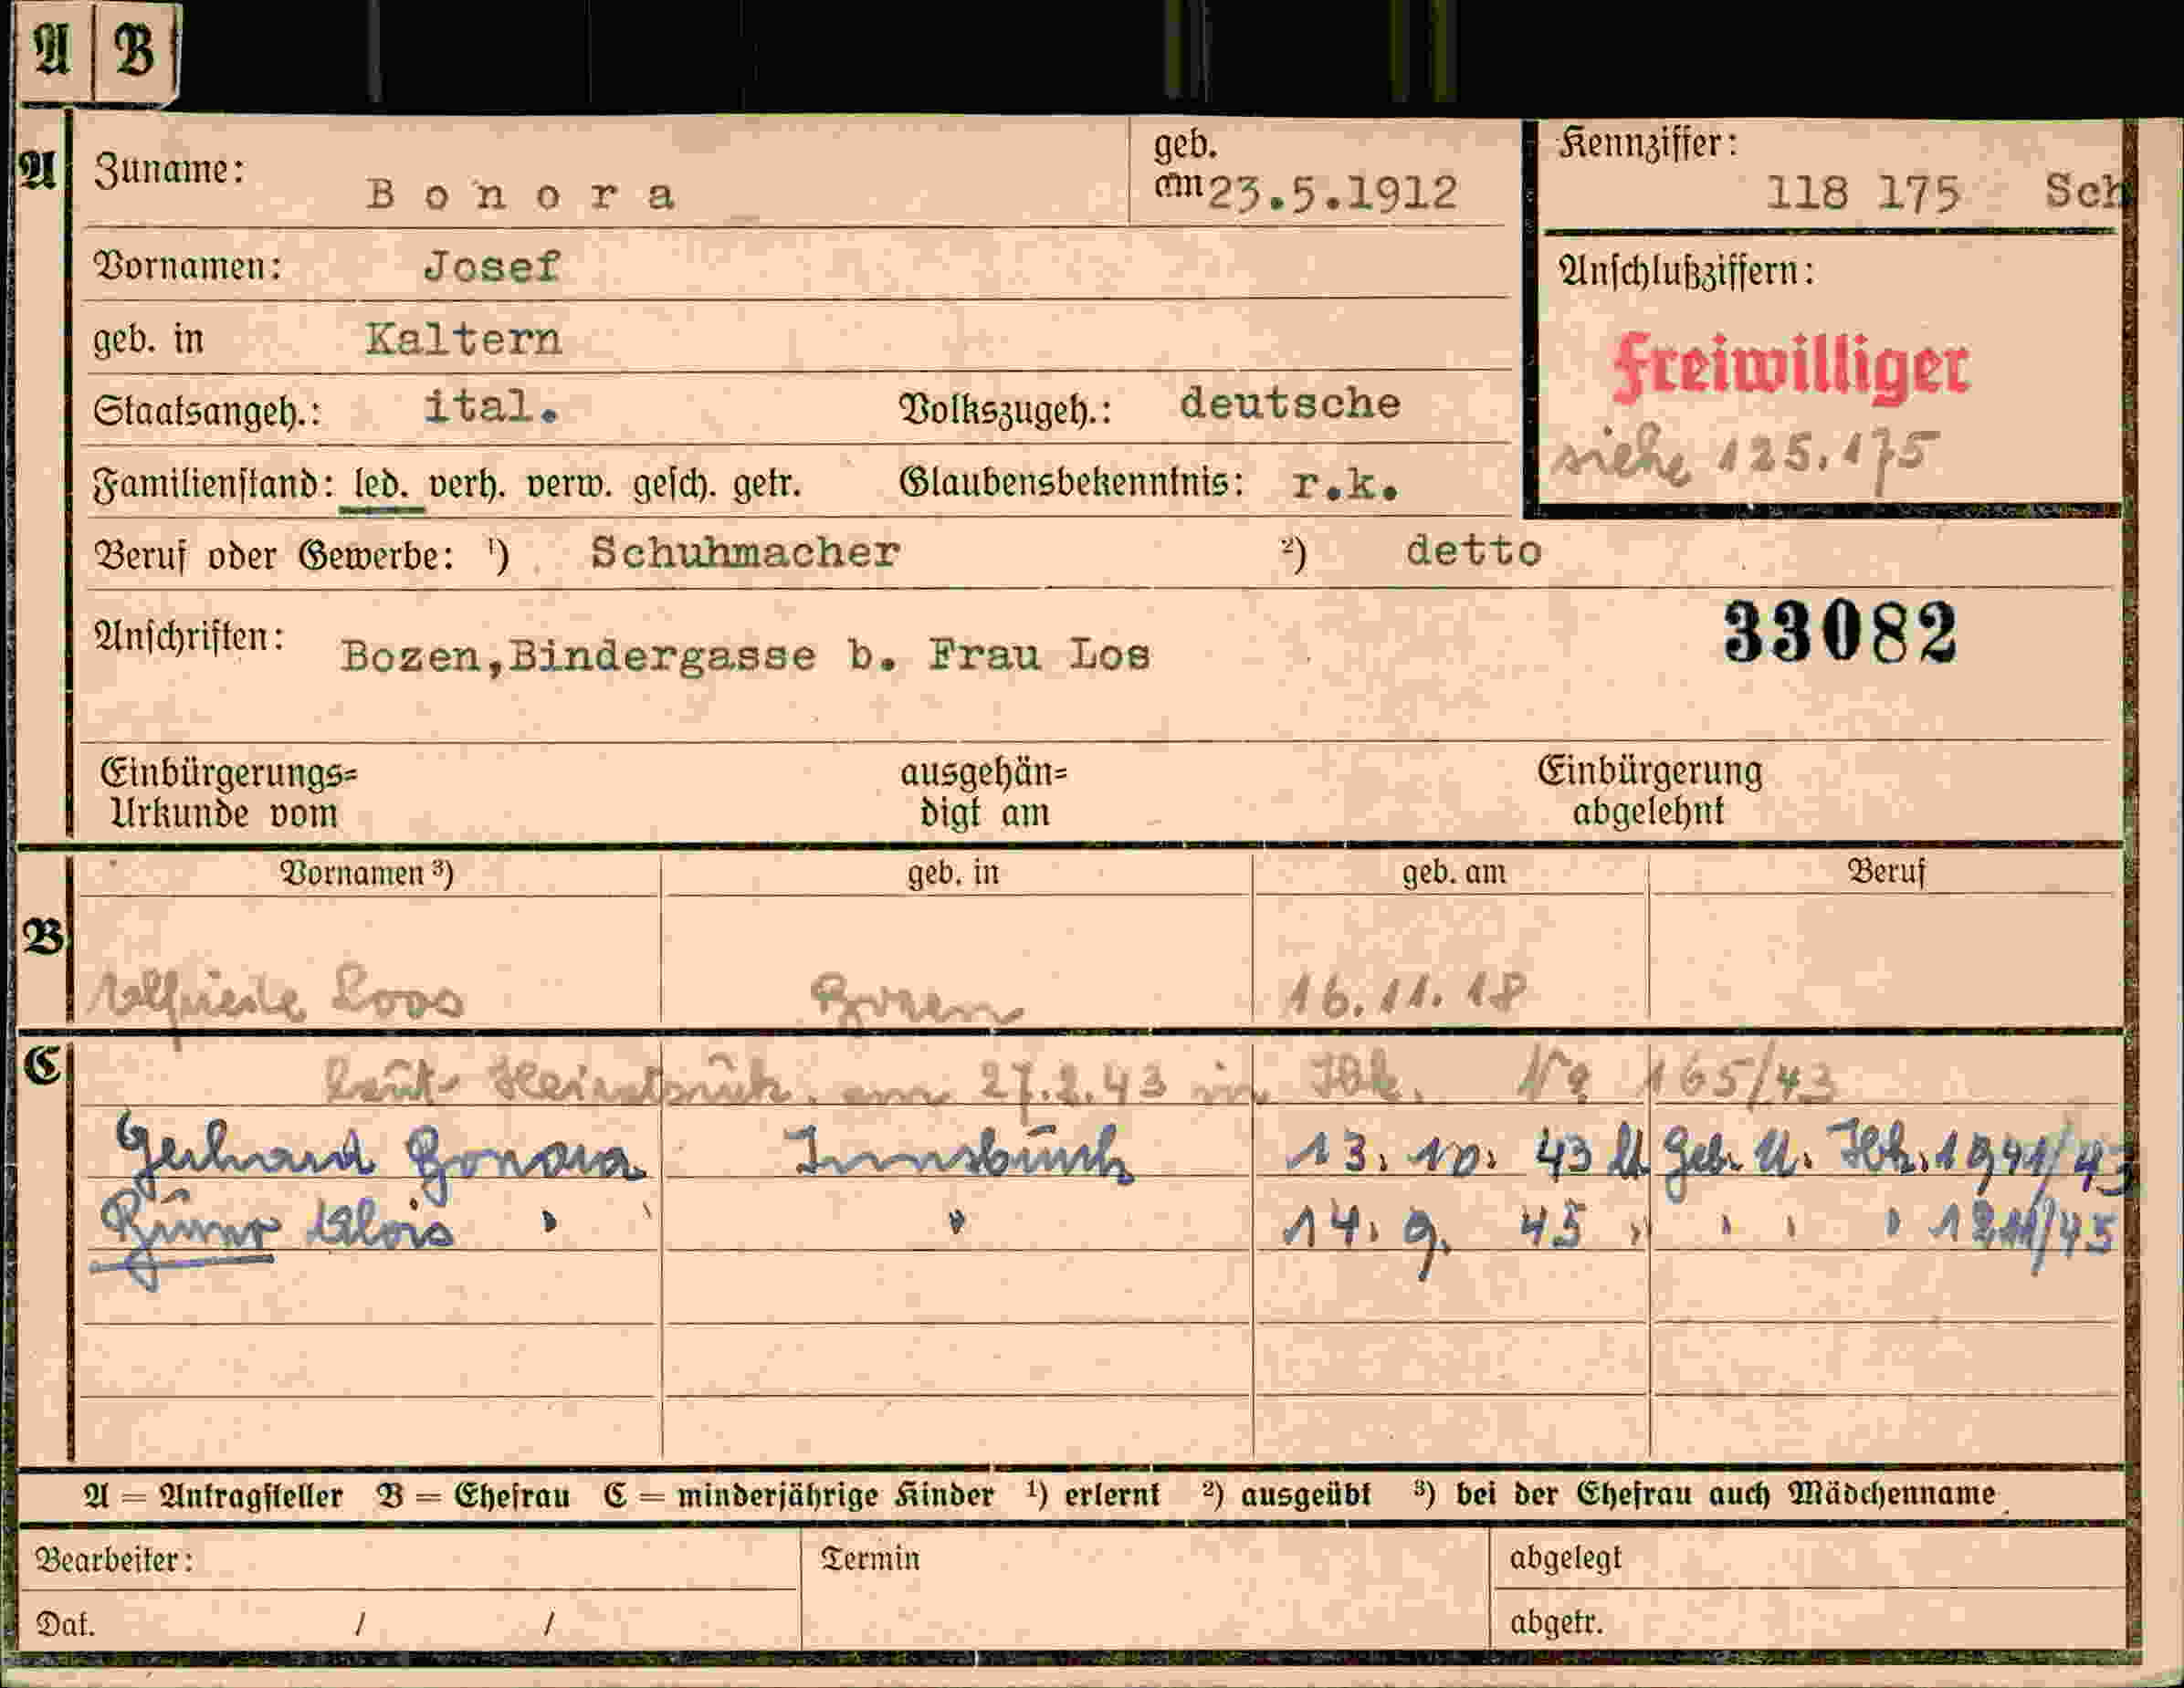 A B
A Zuname: Bonora geb. am 23.5.1912 Kennziffer: 118 175 Sch
Vornamen: Josef Anschlußziffern:
geb. in Kaltern Freiwilliger
Staatsangeh.: ital. Volkszugeh.: deutsche siehe 125.175
Familienstand: led. verh. verw. gesch. getr. Glaubensbekenntnis: r.k.
Beruf oder Gewerbe: ¹) Schuhmacher ²) detto
33082
Anschriften: Bozen,Bindergasse b. Frau Los
Einbürgerungs= ausgehän= Einbürgerung
Urkunde vom digt am abgelehnt
Vornamen ³) geb. in geb. am Beruf
B Loos Bozen 16.11.18
C laut Heiratsurk. am 27.2.43 in Ibk. No 165/43
Gerhard Bonora Innsbruck 13. 10. 43 lt Geb. U. Ibk. 1941/43
Bruno Alois " " 14. 9. 45 " " " "
A = Antragsteller B = Ehefrau C = minderjährige Kinder ¹) erlernt ²) ausgeübt ³) bei der Ehefrau auch Mädchenname
Bearbeiter: Termin abgelegt
Dat. / / abgetr.